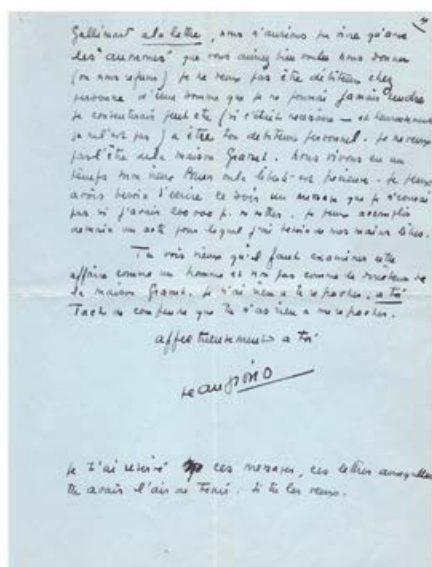 4
Gallimard à la lettre, nous n'aurions pu vivre qu'avec
les "aumones" que vous auriez bien voulu nous donner
(ou nous refuser) je ne veux pas être débiteur chez
personne d'une somme que je ne pourrai jamais rendre
je consentirais peut être (si c'était nécessaire — et heureusement
ce ne l'est pas) à être ton débiteur personnel. je ne veux
pas l'être de la maison Grasset. Nous vivons en un
temps mon vieux où la liberté est précieuse. je peux
avoir besoin d'écrire ce soir un message que je n'écrirai
pas si j'avais 200 000 f. de dettes. je peux accomplir
demain un acte pour lequel j'ai besoin de mes mains libres.
Tu vois même qu'il faut examiner cette
affaire comme un homme et non pas comme le directeur de
la maison Grasset. je n'ai rien à te reprocher, à toi
Tache de comprendre que tu n'as rien à me reprocher.
affectueusement à toi
Jean Giono
je t'ai réservé ces messages, ces lettres auxquelles
tu avais l'air de tenir. Si tu les veux.